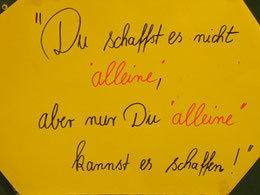 "Du schaffst es nicht
"alleine",
aber nur Du "alleine"
kannst es schaffen!"